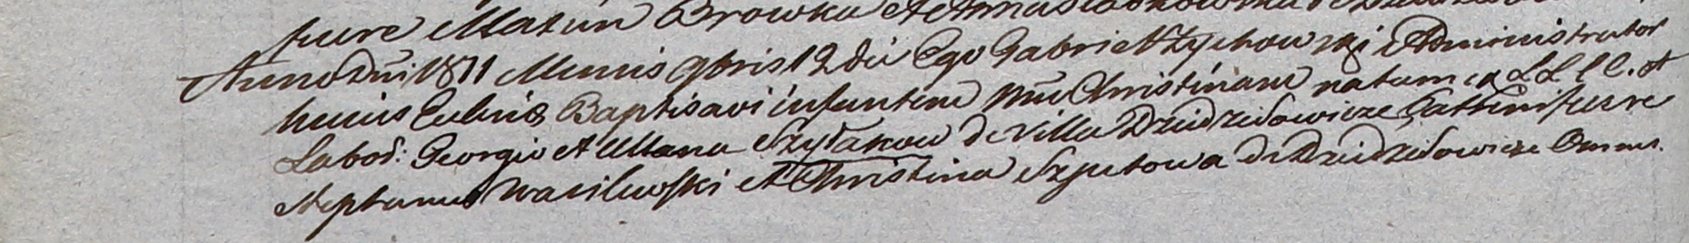 fuere Matün Browka et Anna
Anno Dni 1811 Mensis 9bris 12 die Ego Gabriel Żychowski Administrator
hujus Eccliae Baptisavi infantem nne Christinam natam ex LL CC. et
Labos: Georgio et Mana Szyłakow de Villa Dziedziłowicze Patrini fuere
Stephanus Wasilewski et Christina Szputowa de Dziedziłowicze Omnes.